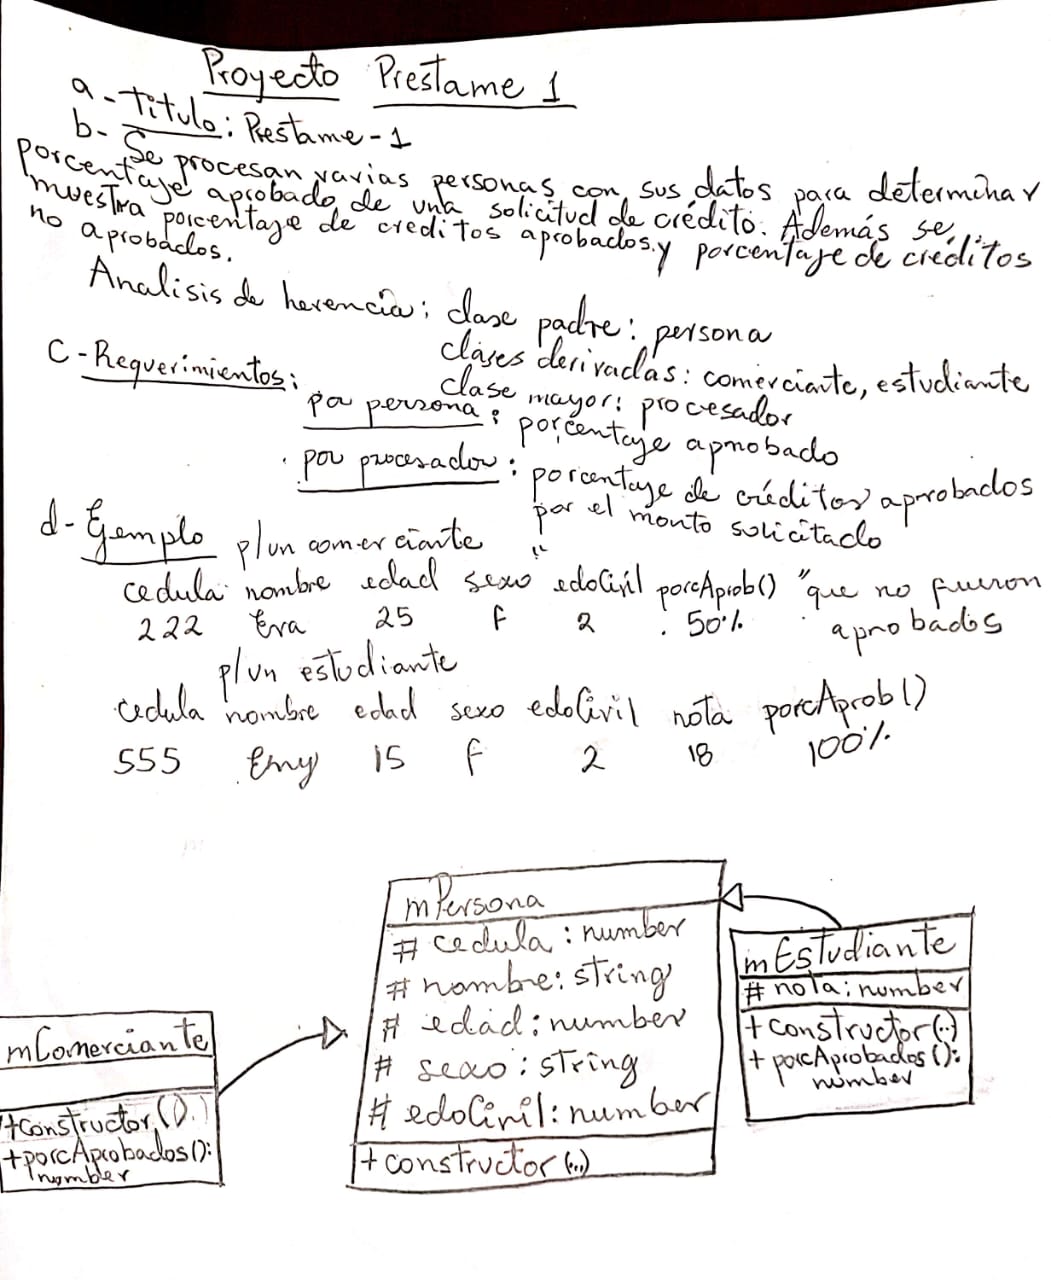 Proyecto Prestame 1
a - Titulo: Prestame - 1
b- Se procesan varias personas con sus datos para determinar
porcentaje aprobado de una solicitud de crédito. Además se
muestra porcentaje de creditos aprobados y porcentaje de créditos
no aprobados.
Analisis de herencia: clase padre: persona
clases derivadas: comerciante, estudiante
clase mayor: procesador
C - Requerimientos:
por persona: porcentaje aprobado
por procesador: porcentaje de créditos aprobados
por el monto solicitado
" "que no fueron aprobados
d- Ejemplo p/un comerciante
cedula nombre edad sexo edoCivil porcAprob()
222 Eva 25 f 2 50%
p/un estudiante
cedula nombre edad sexo edoCivil nota porcAprob()
555 Emy 15 f 2 18 100%
mPersona
# cedula: number
# nombre: string
# edad: number
# sexo: string
# edoCivil: number
+ constructor(...)
mEstudiante
# nota: number
+ constructor(..)
+ porcAprobados():
number
mComerciante
+constructor()
+porcAprobados():
number